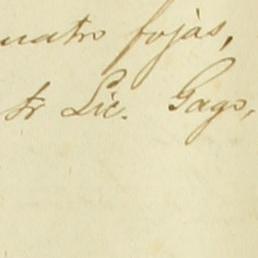 uatro fojàs,
tr Lic. Gago,